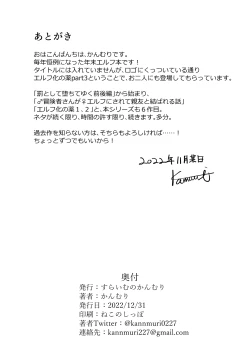 あとがき
おはこんばんちは、かんむりです。
毎年恒例になった年末エルフ本です！
タイトルには入れていませんが、ロゴにくっついている通り
エルフ化の薬part3ということで、お二人にも登場してもらっています。
「罰として堕ちてゆく前後編」から始まり、
「♂冒険者さんが♀エルフにされて親友と結ばれる話」
「エルフ化の薬１、２」と、本シリーズも６作目。
ネタが続く限り、時間の許す限り、続きます。多分。
過去作を知らない方は、そちらもよろしければ……！
ちょっとずつでもいいから！
2022年11月某日
Kanmuri
奥付
発行：すらいむのかんむり
著者：かんむり
発行日：2022/12/31
印刷：ねこのしっぽ
著者Twitter：@kannmuri0227
連絡先：kannmuri227@gmail.com